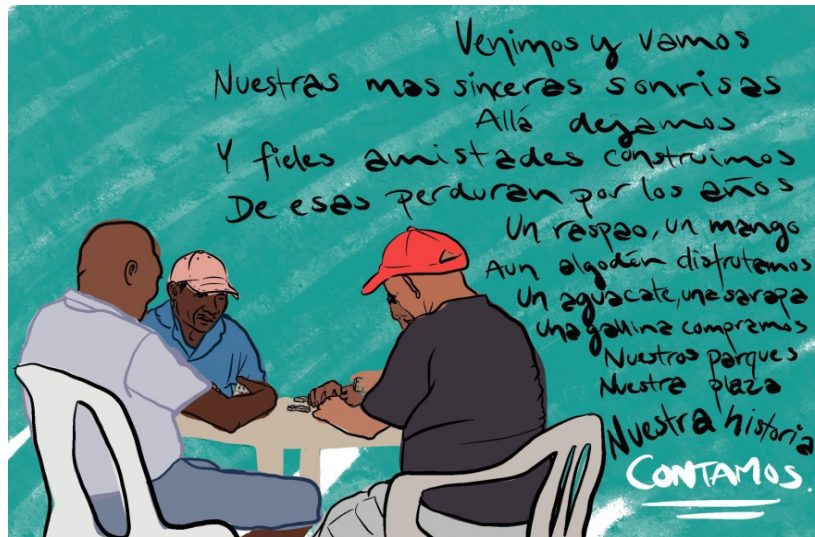 Venimos y vamos
Nuestras mas sinceras sonrisas
Allá dejamos
Y fieles amistades construimos
De esas perduran por los años
Un raspao, un mango
Aun algodón disfrutamos
Un aguacate, una sarapa
Una gallina compramos
Nuestros parques
Nuestra plaza
Nuestra historia
CONTAMOS.